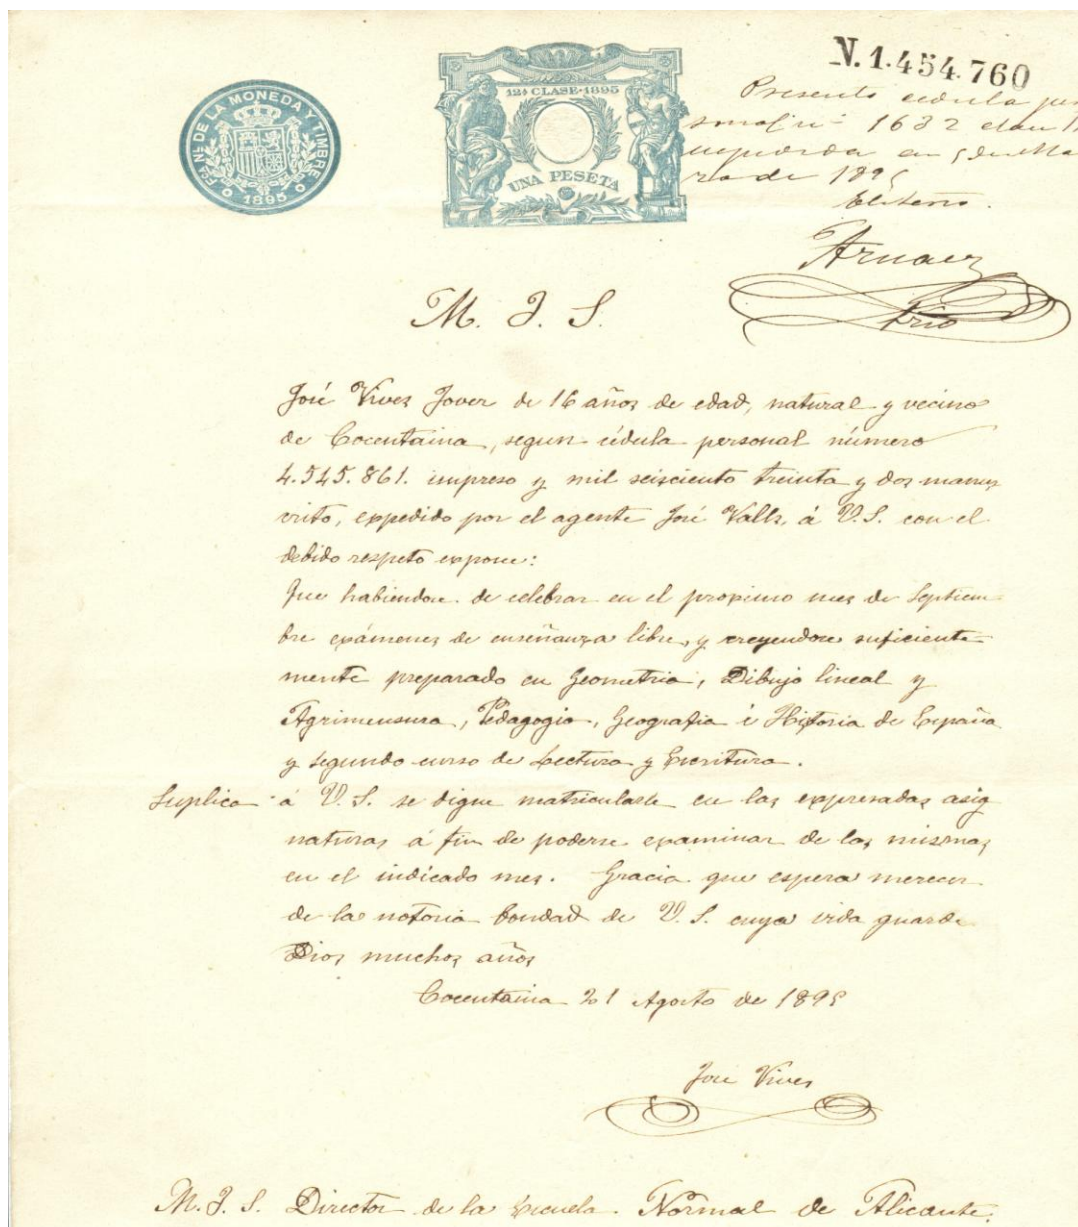 N. 1.454.760
Fca. Nal. DE LA MONEDA Y TIMBRE
1895
12ª CLASE-1895
UNA PESETA
Presento cedula per
sonal nº 1632
en 5 de Ma
rzo de 1895
Arnaez
M. I. S.
José Vives Jover de 16 años de edad, natural y vecino
de Cocentaina, segun cédula personal número
4.545.861. impreso y mil seisciento treinta y dos manus
crito, expedido por el agente José Valls, á V.S. con el
debido respeto expone:
Que habiendose de celebrar en el proximo mes de Septiem-
bre exámenes de enseñanza libre, y creyendose suficiente-
mente preparado en Geometria, Dibujo lineal y
Agrimensura, Pedagogia, Geografia é Historia de España
y segundo curso de Lectura y Escritura.
Suplica á V.S. se digne matricularle en las expresadas asig
naturas á fin de poderse examinar de las mismas
en el indicado mes. Gracia que espera merecer
de la notoria bondad de V.S. cuya vida guarde
Dios muchos años
Cocentaina 21 Agosto de 1895
José Vives
M. I. S. Director de la Escuela Normal de Alicante.